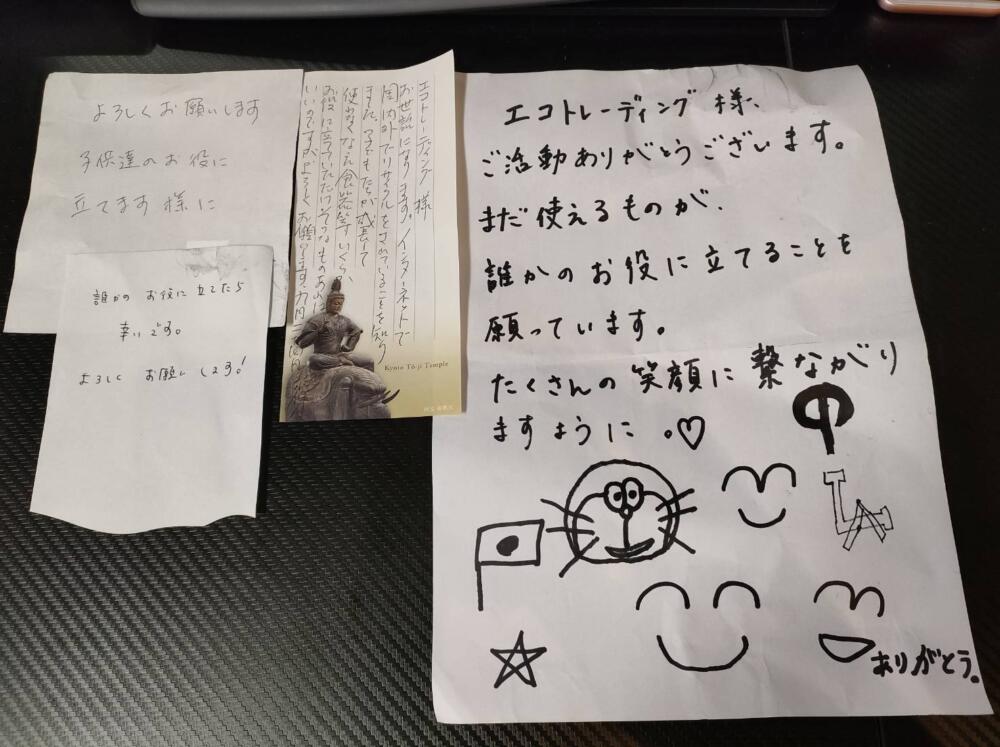 よろしくお願いします
子供達のお役に
立てます様に
誰かのお役に立てたら
幸いです。
よろしく お願いします!
エコトレーディング様
お世話になります。インターネットで
国内外でリサイクルをされていることを知り
ました。子どもたちが成長して
使わなくなった食器等いくらか
お役に立てていただけそうなものあれば
いいのですがよろしくお願いします。
Kyoto Tō-ji Temple
エコトレーディング 様、
ご活動ありがとうございます。
まだ使えるものが、
誰かのお役に立てることを
願っています。
たくさんの笑顔に繋ながり
ますように 。♡
ありがとう。